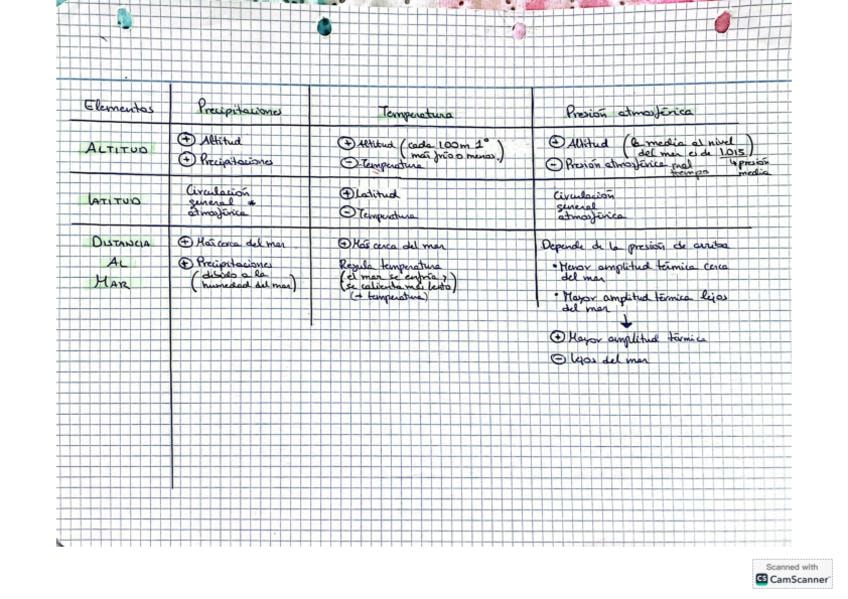 Elementos
Precipitaciones
Temperatura
Presión atmosférica
ALTITUD
⊕ Altitud
⊕ Precipitaciones
⊕ Altitud (cada 100m 1º
más frío o menos.)
⊖ Temperatura
⊕ Altitud (la media al nivel
del mar es de 1.015)
↳ presión
media
⊖ Presión atmosférica mal
tiempo
LATITUD
Circulación
general *
atmosférica
⊕ Latitud
⊖ Temperatura
Circulación
general
atmosférica
DISTANCIA
AL
MAR
⊕ Más cerca del mar
⊕ Precipitaciones
(debido a la
humedad del mar)
⊕ Más cerca del mar
Regula temperatura
(el mar se enfría y
se calienta más lento)
(→ temperatura)
Depende de la presión de arriba
• Menor amplitud térmica cerca
del mar
• Mayor amplitud térmica lejos
del mar
↓
⊕ Mayor amplitud térmica
⊖ lejos del mar
Scanned with
CS CamScanner